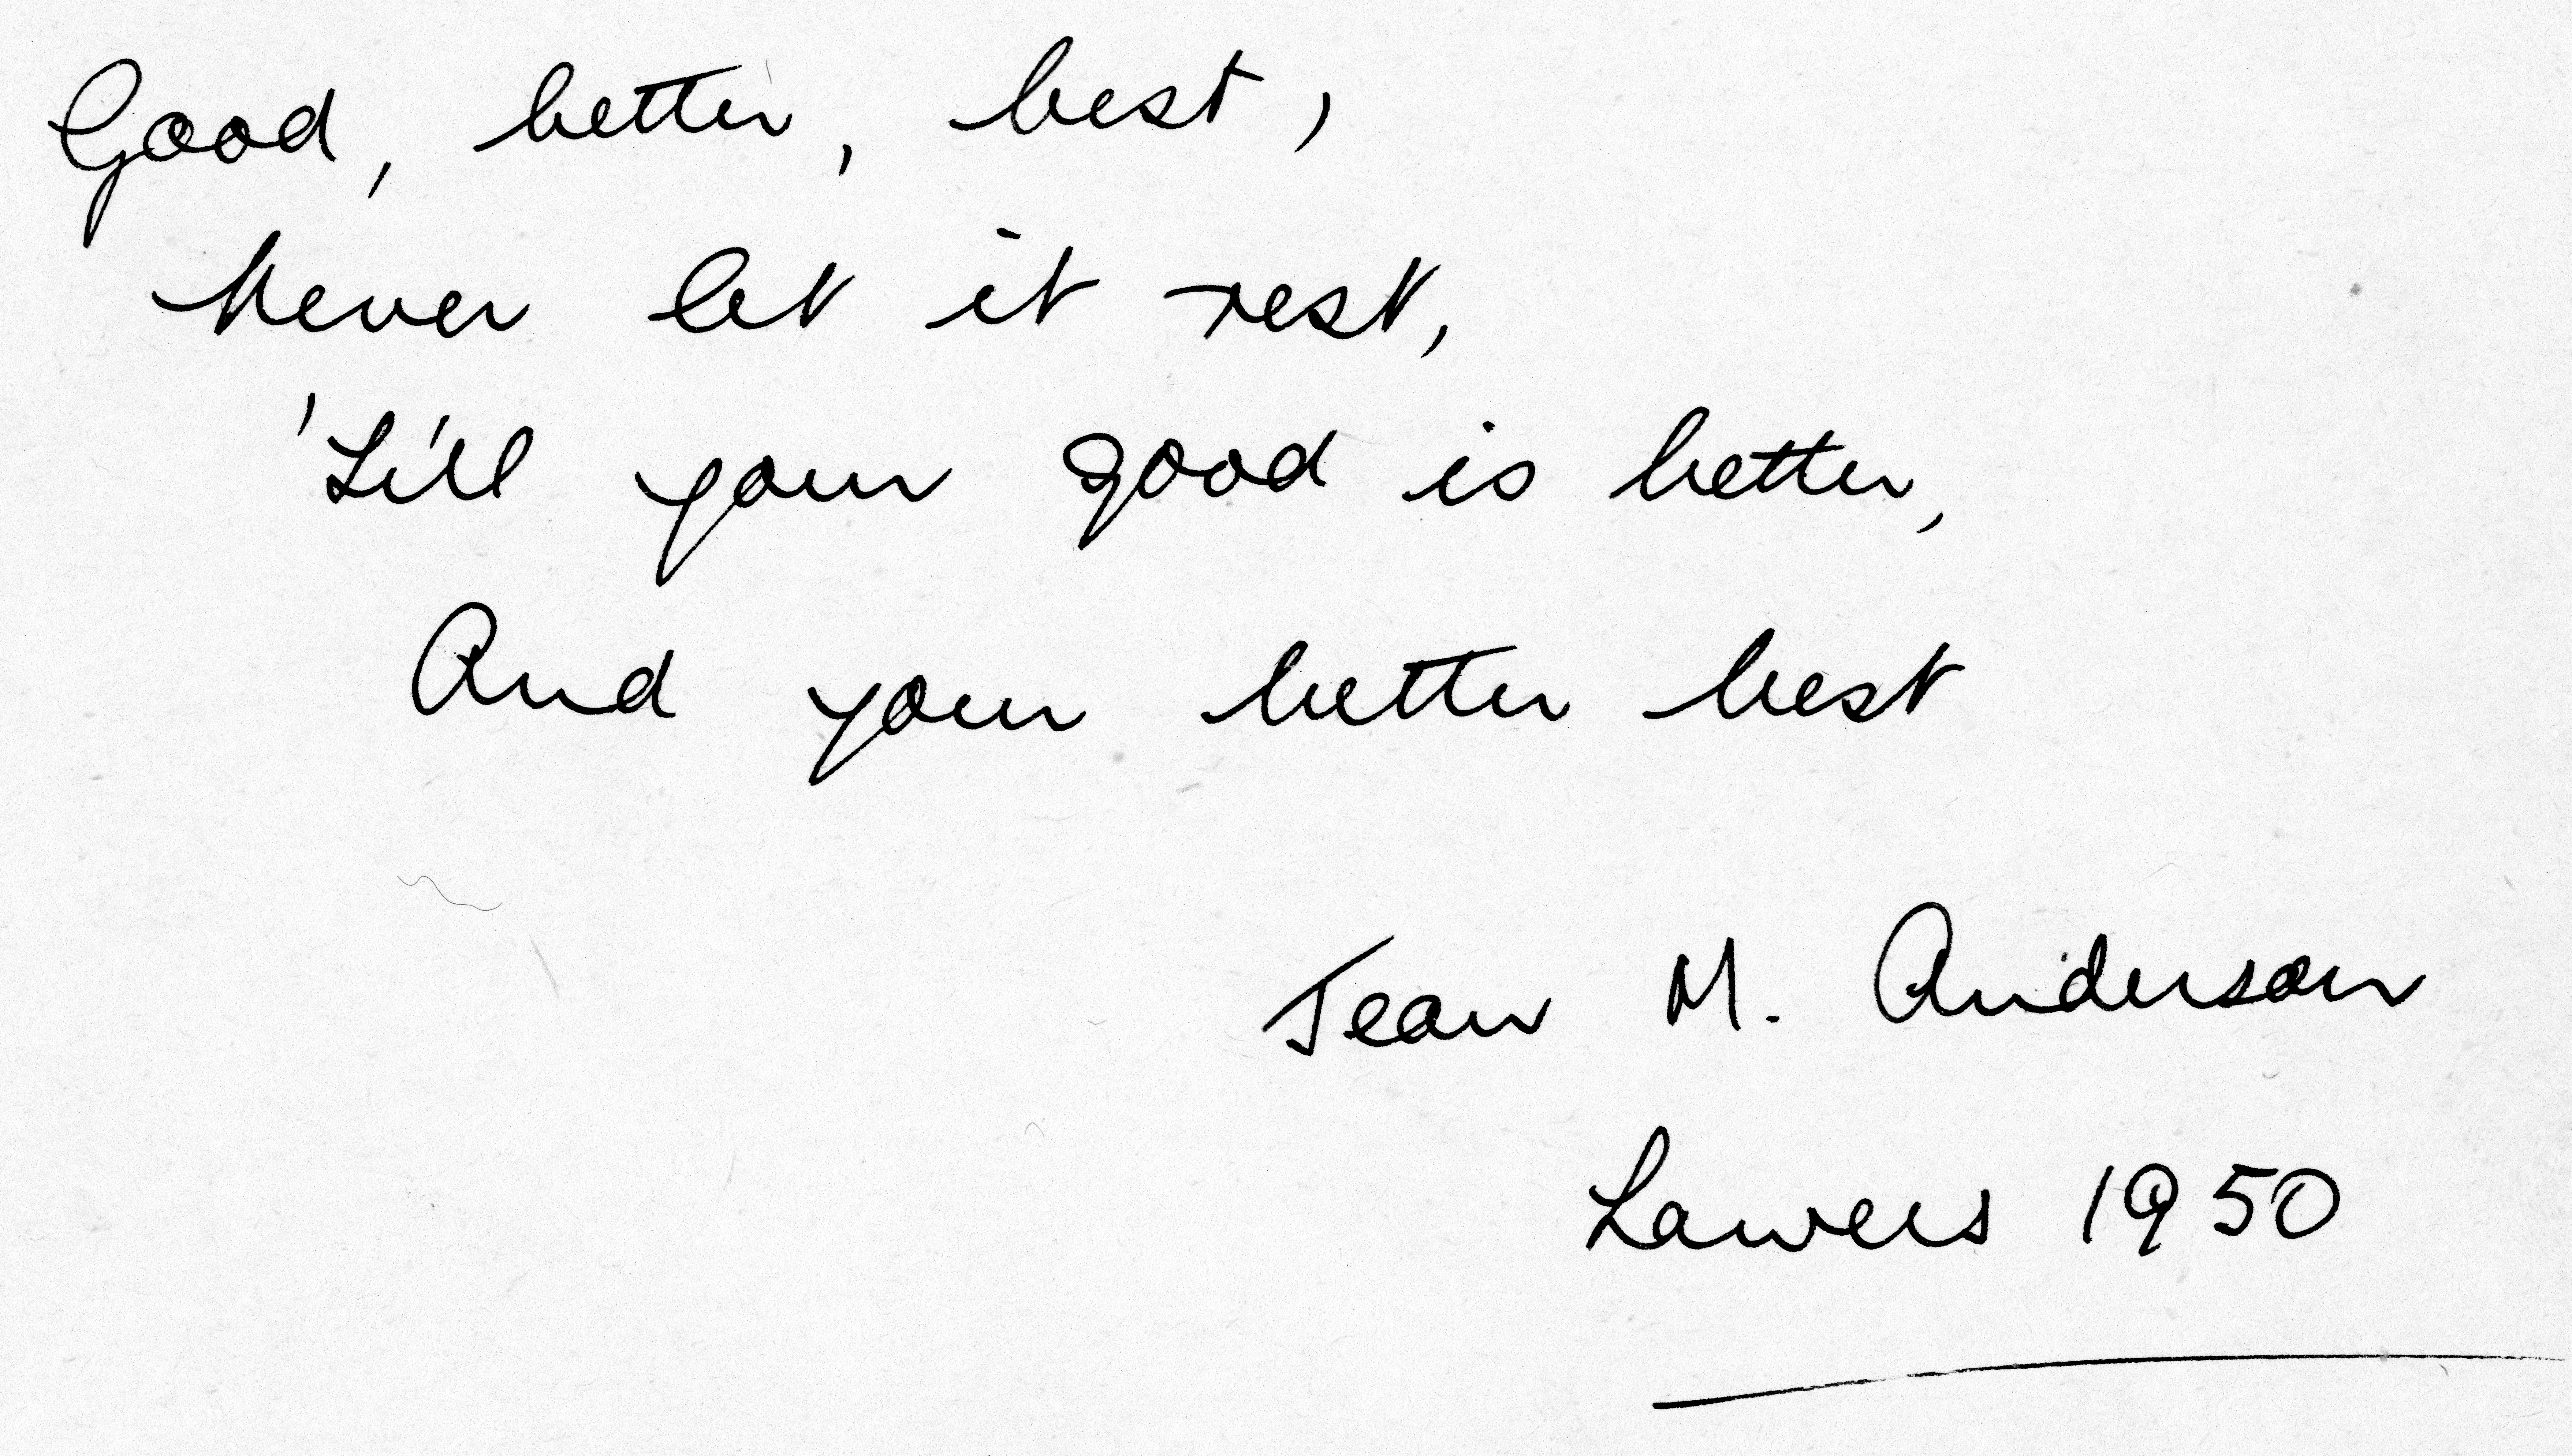 Good, better, best,
Never let it rest,
'Till your good is better,
And your better best
Jean M. Anderson
Lawers 1950